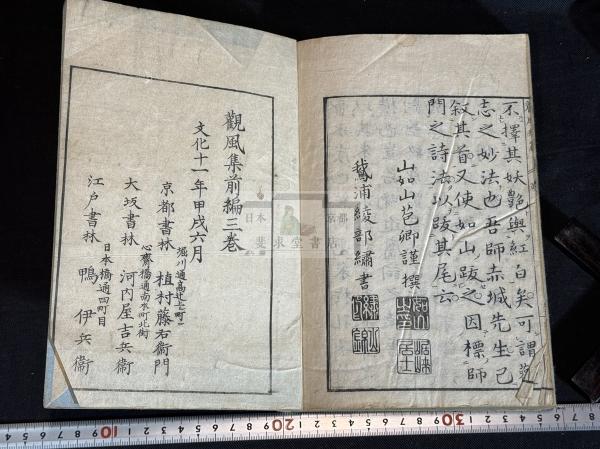 不擇其妖艷與紅白矣可謂花
志之妙法也吾師赤城先生已
叙其首又使如山跋之因標師
門之詩法以跋其尾云
山如山苞卿謹撰
鵞浦綾部繡書
觀風集前編三卷
文化十一年甲戌六月
堀川通高辻上町
京都書林 植村藤右衛門
心齋橋通南本町北街
大坂書林 河内屋吉兵衞
日本橋通四町目
江戸書林 鴨伊兵衞
日本 京都
斐求堂書店
10 20 30